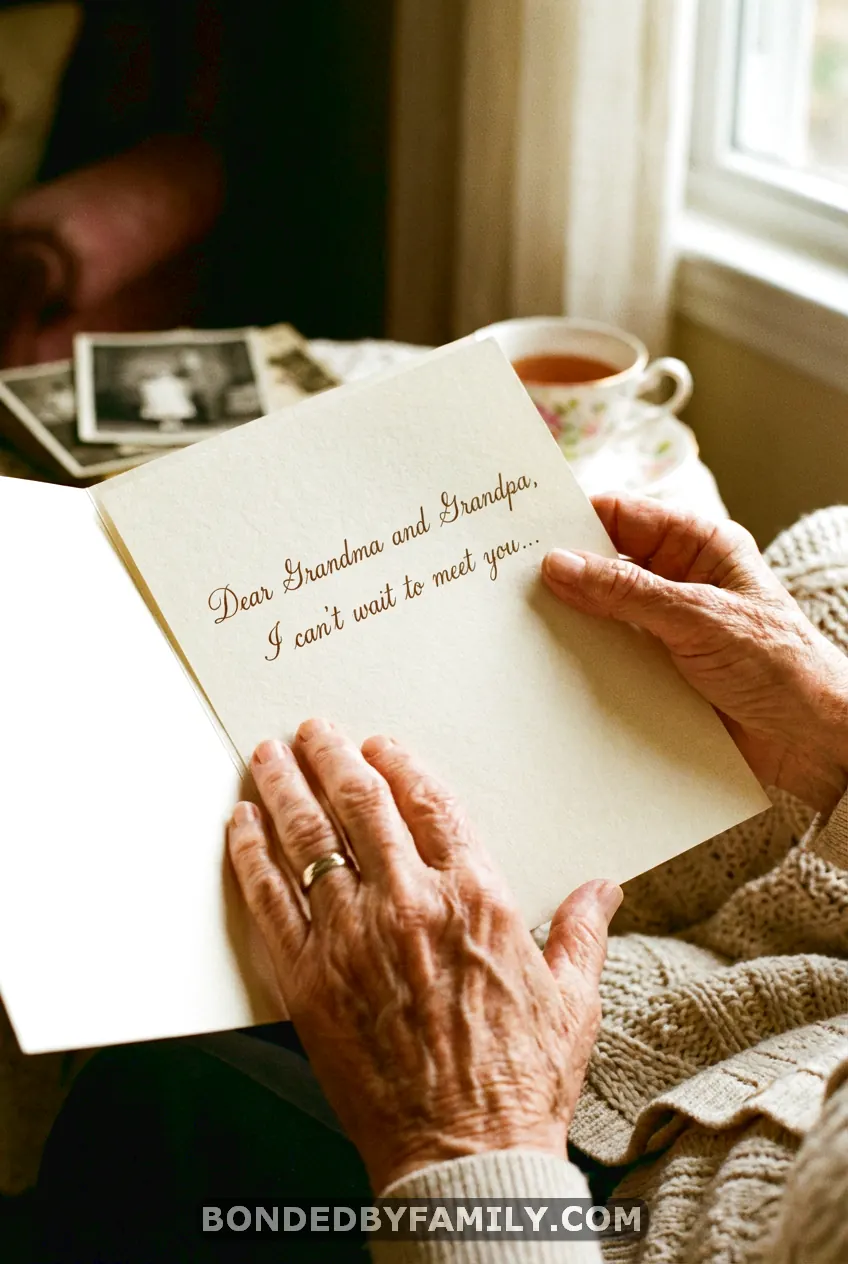 Dear Grandma and Grandpa,
I can't wait to meet you...
BONDEDBYFAMILY.COM